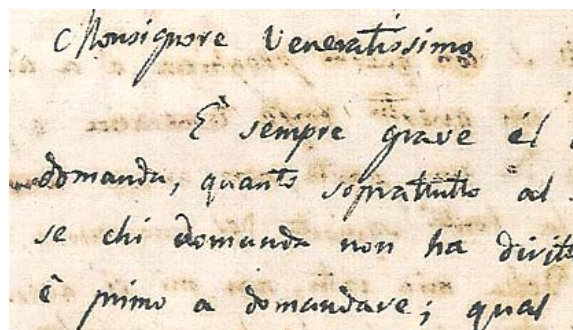 Monsignore Veneratissimo
E' sempre grave él
domanda, quanto sopratutto al
se chi domanda non ha diritto
è primo a domandare; qual